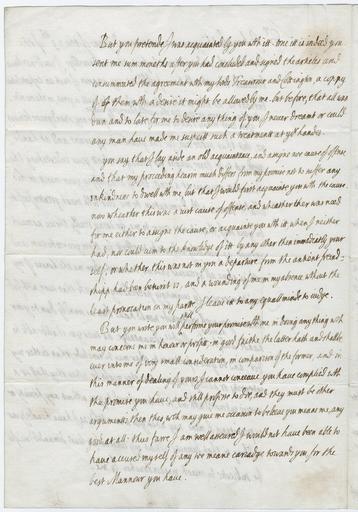 But you pretende I was acquainted by you with itt. true itt is indeed you
sent me sum moneths after you had concluded and signed the articles and
consummated the agreement with my lords Treasurour and Cottington, a coppy
of them with a desire it might be allowed by me. but before, that all was
dun and to late for me to desire any thing of you, I never dreamt or could
any man have made me suspect such a treatment att your handes.
you say that I lay aside an old acquaintance, and assigne noe cause of offense
and that my proceeding heerin much differs from my promise not to suffer any
unkindnes to dwell with me, but that I would first acquainte you with the cause.
now wheather this was a just cause of offense, and wheather ther was need
for me either to assigne the cause, or acquainte you with it, when I neither
had, nor could cum to the knowledge of itt by any other then immediatly your
self, or whether this was not in you a departure from the antient freind=
shipp had bin betwixt us, and a wounding of me in my absence without the
least provocation on my parte, I leave it to any equall minde to iudge.
But you write you will performe your promise with me in doeing any thing with
may concerne me in honour or profitt. in good faithe the latter hath and shall
ever bee to me of very small consideration, in comparison of the former, and in
this manner of dealing of yours I cannot conceave, you have complied with
the promise you have, and still professe to doe, and they must be other
arguments then thes with may give me occasion to beleive you meane me, any
good at all. thus farre I am well assured I would not have been able to
have accused my self of any ill meant cariadge towards you, for the
best Mannour you have.